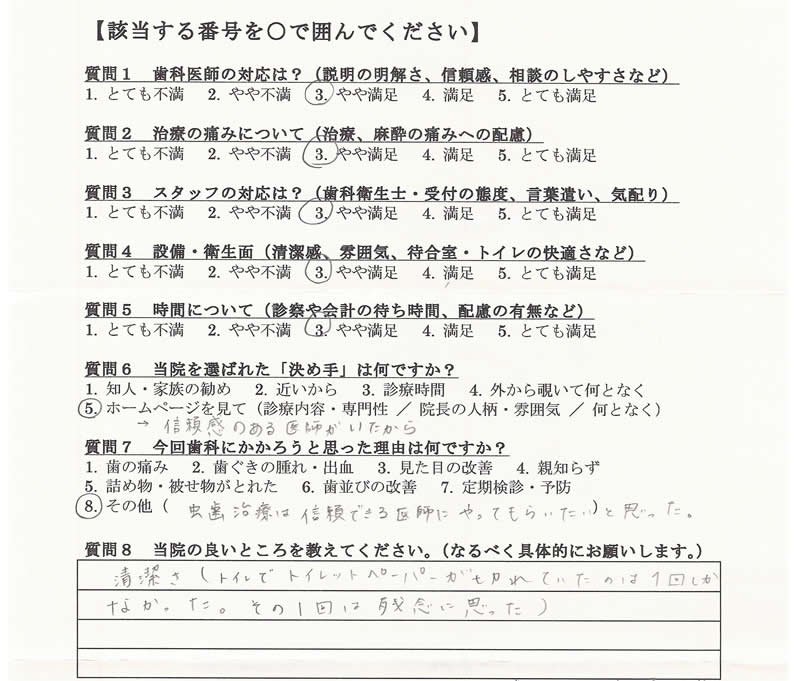 【該当する番号を〇で囲んでください】
質問1 歯科医師の対応は?(説明の明解さ、信頼感、相談のしやすさなど)
1. とても不満 2. やや不満 3. やや満足 4. 満足 5. とても満足
質問2 治療の痛みについて(治療、麻酔の痛みへの配慮)
1. とても不満 2. やや不満 3. やや満足 4. 満足 5. とても満足
質問3 スタッフの対応は?(歯科衛生士・受付の態度、言葉遣い、気配り)
1. とても不満 2. やや不満 3. やや満足 4. 満足 5. とても満足
質問4 設備・衛生面(清潔感、雰囲気、待合室・トイレの快適さなど)
1. とても不満 2. やや不満 3. やや満足 4. 満足 5. とても満足
質問5 時間について(診察や会計の待ち時間、配慮の有無など)
1. とても不満 2. やや不満 3. やや満足 4. 満足 5. とても満足
質問6 当院を選ばれた「決め手」は何ですか?
1. 知人・家族の勧め 2. 近いから 3. 診療時間 4. 外から覗いて何となく
5. ホームページを見て(診療内容・専門性 / 院長の人柄・雰囲気 / 何となく)
→ 信頼感のある医師がいたから
質問7 今回歯科にかかろうと思った理由は何ですか?
1. 歯の痛み 2. 歯ぐきの腫れ・出血 3. 見た目の改善 4. 親知らず
5. 詰め物・被せ物がとれた 6. 歯並びの改善 7. 定期検診・予防
8. その他( 虫歯治療は信頼できる医師にやってもらいたい)と思った。
質問8 当院の良いところを教えてください。(なるべく具体的にお願いします。)
清潔さ(トイレでトイレットペーパーが切れていたのは1回しか
なかった。その1回は残念に思った)